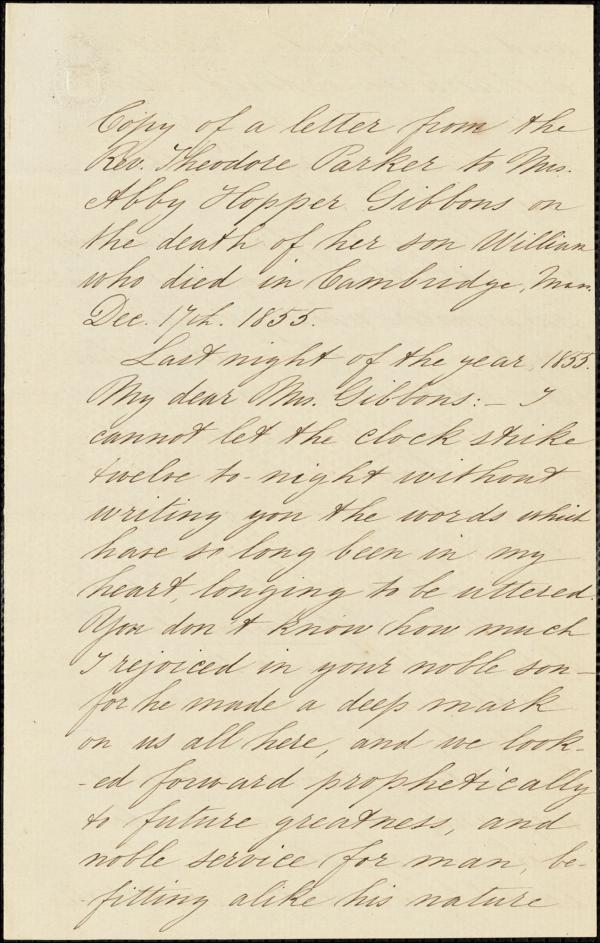 Copy of a letter from the
Rev. Theodore Parker to Mrs.
Abby Hopper Gibbons on
the death of her son William
who died in Cambridge, Mass.
Dec. 17th. 1855.
Last night of the year, 1855.
My dear Mrs. Gibbons:— I
cannot let the clock strike
twelve to-night without
writing you the words which
have so long been in my
heart, longing to be uttered.
You don't know how much
I rejoiced in your noble son—
for he made a deep mark
on us all here, and we look-
-ed forward prophetically
to future greatness, and
noble service for man, be-
-fitting alike his nature